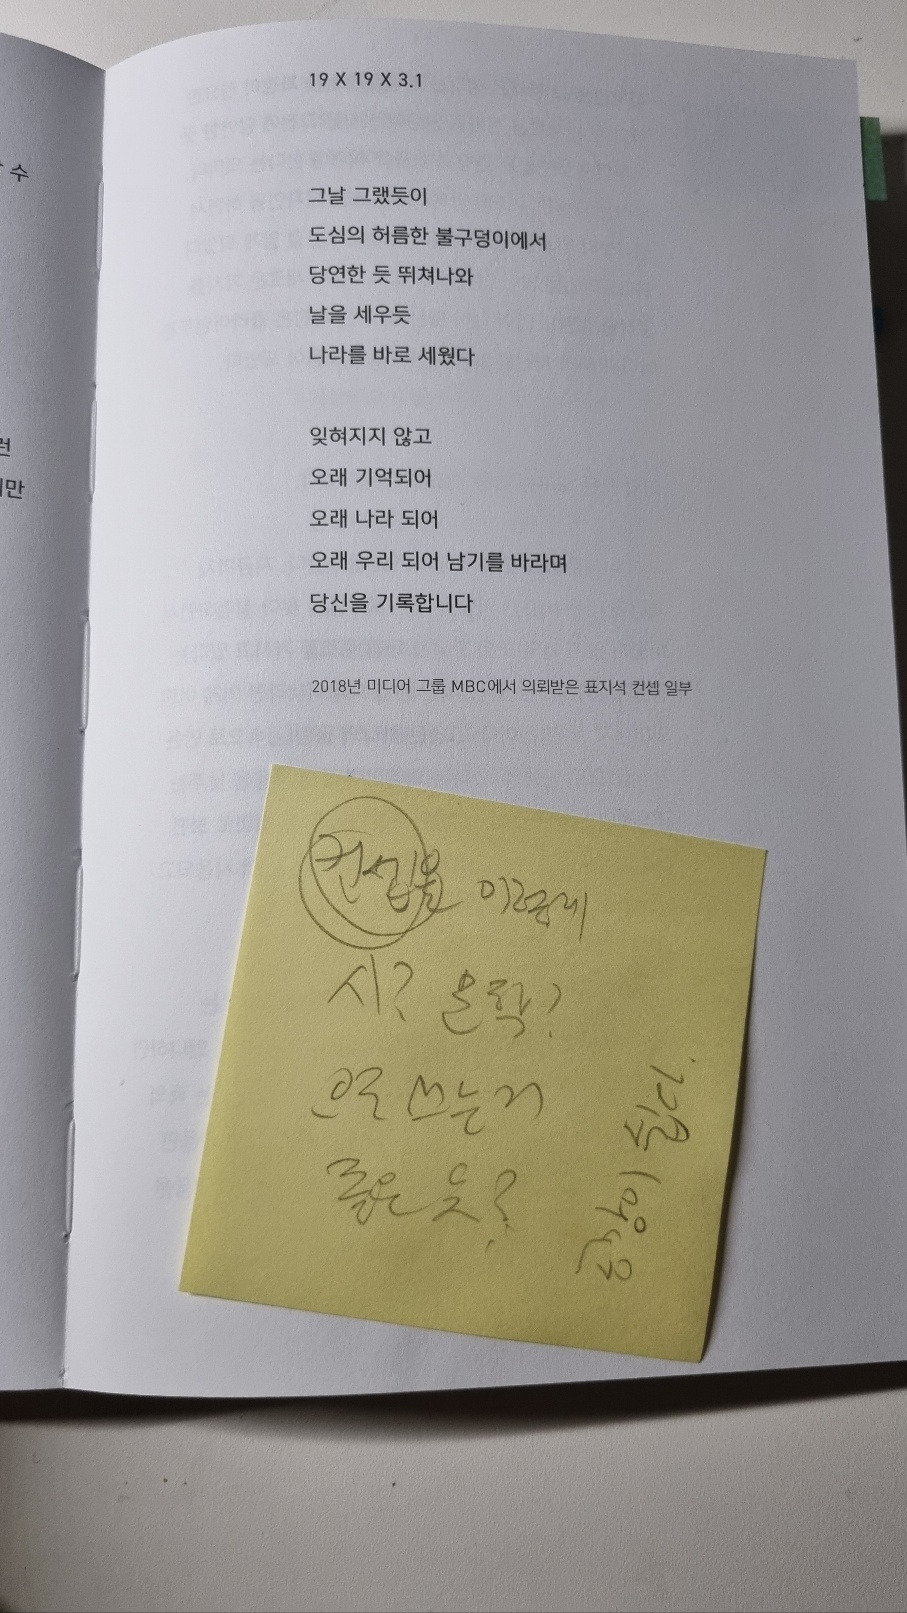 수
런
만
19 X 19 X 3.1
그날 그랬듯이
도심의 허름한 불구덩이에서
당연한 듯 뛰쳐나와
날을 세우듯
나라를 바로 세웠다
잊혀지지 않고
오래 기억되어
오래 나라 되어
오래 우리 되어 남기를 바라며
당신을 기록합니다
2018년 미디어 그룹 MBC에서 의뢰받은 표지석 컨셉 일부
컨셉을 이렇게
시? 문학?
으로 쓰는거
좋은 듯?
쉽다.